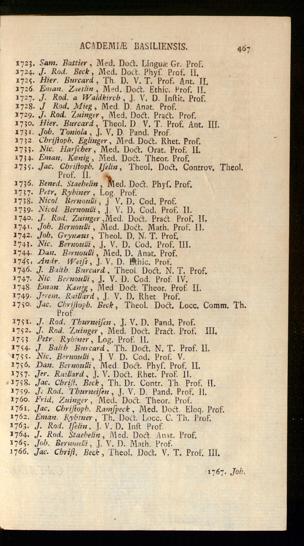 ACADEMIÆ BASILIENSIS. 467
1723. Sam. Battier, Med. Doct. Linguæ Gr. Prof.
1724. J. Rod. Beck, Med. Doct. Phys. Prof. II.
1725. Hier. Burcard, Th. D. V. T. Prof. Ant. II.
1726. Eman. Zæslin, Med. Doct. Ethic. Prof. II.
1727. J. Rod. a Waldkirch, J. V. D. Instit. Prof.
1728. J Rod. Mieg, Med D. Anat. Prof.
1729. J. Rod. Zuinger, Med. Doct. Pract. Prof.
1730. Hier. Burcard, Theol D V. T. Prof. Ant. III.
1731. Joh. Toniola, J V. D Pand. Prof
1732 Christoph. Eglinger, Med Doct. Rhet. Prof.
1733. Nic. Harscher, Med. Doct. Orat. Prof. II.
1734. Eman. Kœnig, Med Doct. Theor. Prof.
1735. Jac. Christoph. Iselin, Theol. Doct. Controv. Theol.
Prof. II.
1736 Bened. Staehelin, Med. Doct. Phys. Prof.
1737. Petr. Ryhiner, Log. Prof.
1738. Nicol Bernoulli, J V D. Cod. Prof.
1739. Nicol. Bernoulli, J. V D. Cod. Prof. II.
1740. J. Rod. Zuinger, Med. Doct. Pract Prof. II.
1741. Joh. Bernoulli, Med Doct. Math. Prof. II.
1742. Joh. Grynæus, Theol. D. N T. Prof.
1743. Nic. Bernoulli, J. V. D. Cod. Prof. III.
1744. Dan. Bernoulli, Med. D. Anat. Prof.
1745. Andr. Weiss, J. V. D. Ethic. Prof.
1746. J. Balth Burcard, Theol Doct. N. T. Prof.
1747. Nic Bernoulli, J V. D. Cod. Prof IV.
1748 Eman Kœnig, Med Doct Theor. Prof II.
1749. Jerem. Raillard, J V. D Rhet Prof.
1750. Jac. Christoph. Beck, Theol. Doct. Locc. Comm. Th.
Prof
1751. J. Rod. Thurneisen, J V. D. Pand. Prof.
1752. J. Rod. Zuinger, Med. Doct. Pract. Prof. III.
1753 Petr. Ryhiner, Log. Prof. II.
1754 J Balth Burcard, Th. Doct. N. T. Prof. II.
1755. Nic. Bernoulli, J V D. Cod. Prof. V.
1756. Dan. Bernoulli, Med. Doct. Phys. Prof. II.
1757. Jer. Raillard, J. V. Doct. Rhet. Prof. II.
1758. Jac. Christ. Beck, Th. Dr. Contr. Th. Prof. II.
1759. J. Rod. Thurneisen, J. V D. Pand. Prof. II.
1760. Frid. Zuinger, Med Doct. Theor. Prof.
1761. Jac. Christoph. Ramspeck, Med. Doct. Eloq. Prof.
1762. Eman. Ryhiner, Th. Doct. Locc. C. Th. Prof.
1763. J. Rod. Iselin, J. V. D. Inst Prof
1764. J. Rod. Staehelin, Med. Doct. Anat. Prof.
1765. Joh. Bernoulli, J. V D. Math. Prof.
1766. Jac. Christ. Beck, Theol. Doct. V. T. Prof. III.
1767. Joh.